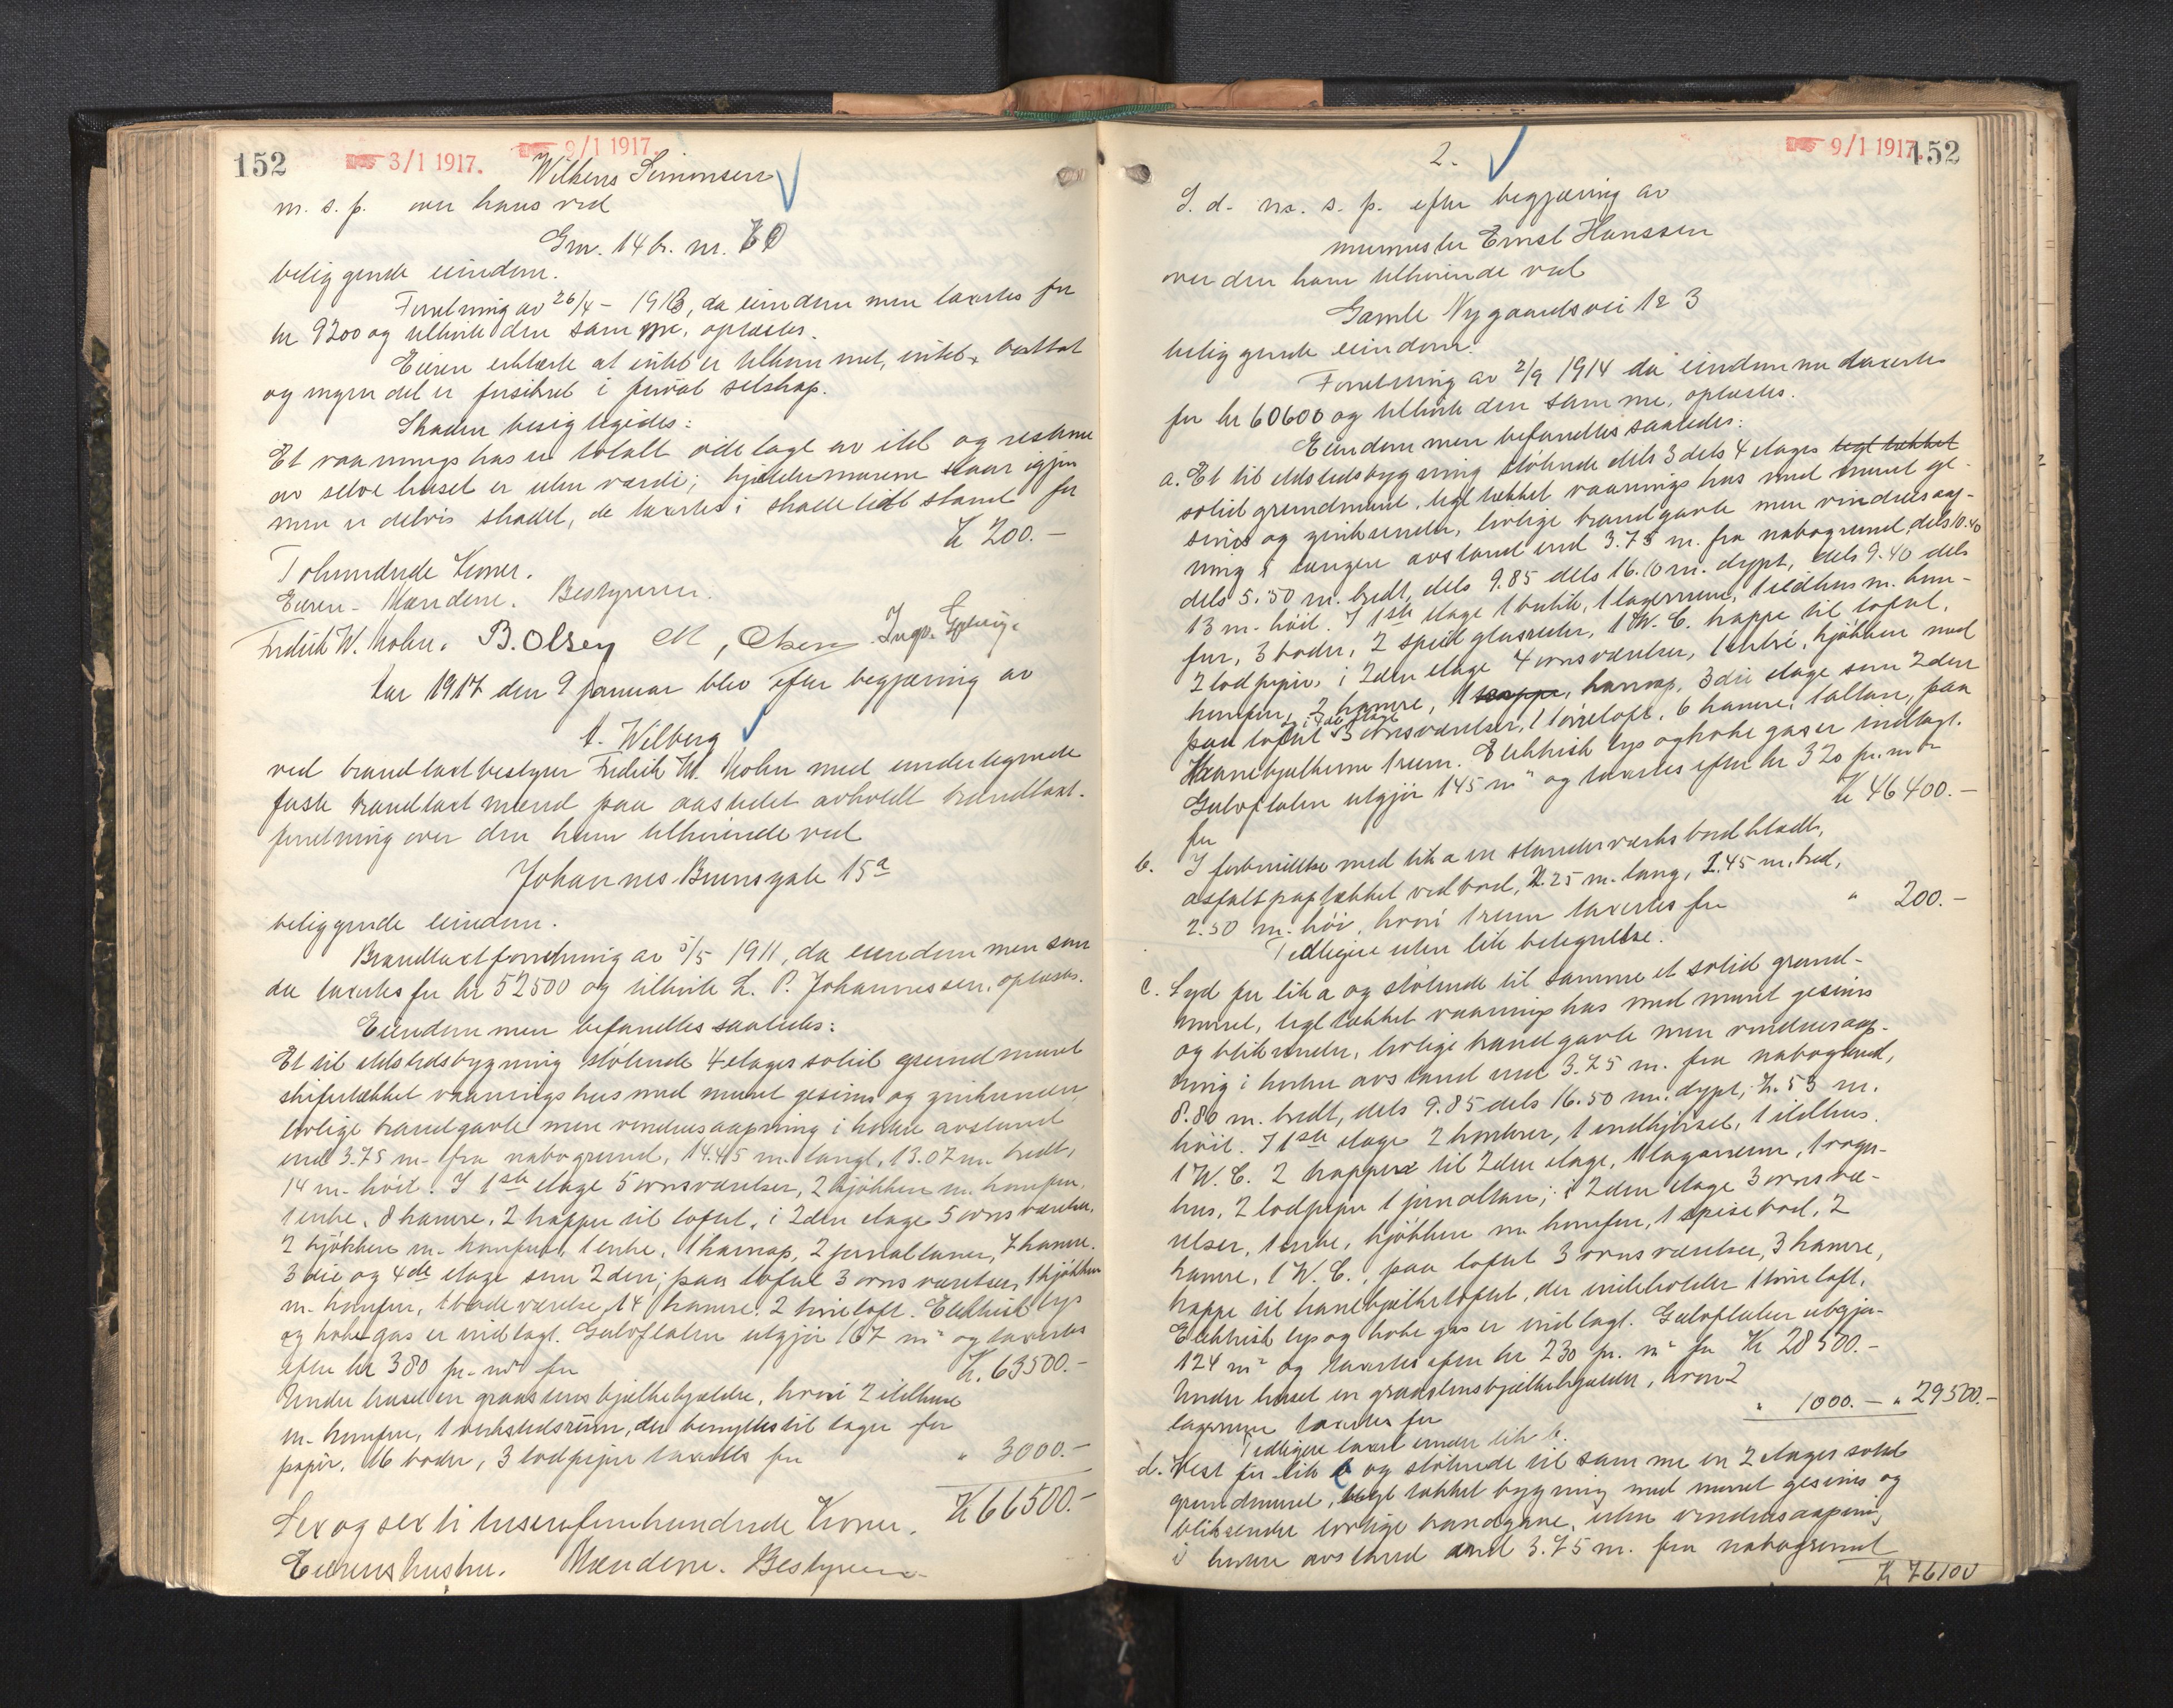 152 3/1 1917. 9/1 1917.
Wilkens Simonsen
m. s. p. over hans ved
Gnr. 14 br. nr.
beliggende eiendom.
Forretning av 26/4 - 1913, da eiendommen taxertes for
kr 9200 og tilhørte den samme, oplæstes.
Eieren erklærte at intet er tilkommet, intet
og ingen del er forsikret i privat selskap.
Skaden besigtigedes:
Et vaaningshus er totalt ødelagt av ild og restene
av selve huset er uten værdi; kjeldermurene staar igjen
men er delvis skadet, de taxertes i skadelidt stand for
Kr 200.-
Tohundrede Kroner.
Eieren - Mændene. Bestyreren.
Fredrik W. Mohn. B. Olsen M, Olsen
Aar 1917 den 9 januar blev efter begjæring av
A. Wilberg
ved brandtaxtbestyrer Fredrik W. Mohn med undertegnede
faste brandtaxtmænd paa aastedet avholdt brandtaxt-
forretning over den ham tilhørende ved
Johannes Brunsgate 15a
beliggende eiendom.
Brandtaxtforretning av 5/5 1911, da eiendommen som
da taxertes for kr 52500 og tilhørte L. P. Johannessen, oplæstes.
Eiendommen befandtes saaledes:
Et til ildstedsbygning støtende 4 etages solid grundmuret
skifertækket vaaningshus med muret gesims og zinkrender,
lovlige brandgavle men vinduesaapning i kortere avstand
end 3.75 m. fra nabogrund, 14.45 m. langt, 13.07 m. bredt,
14 m. høit. I 1ste etage 5 ovnsværelser, 2 kjøkken m. komfur,
1 entre, 8 kamre, 2 trapper til loftet, i 2den etage 5 ovnsværelser,
2 kjøkken m. komfur, 1 entre, 1 karnap, 2 jernaltaner, 7 kamre.
3die og 4de etage som 2den; paa loftet 3 ovnsværelser, 1 kjøkken
m. komfur, 1 badeværelse, 14 kamre, 2 tørreloft. Elektrisk lys
og kokegas er indlagt. Gulvflaten utgjør 167 m² og taxertes
efter kr 380 pr. m² for Kr. 63500.-
Under huset en graastens bjelkekjelder, hvori 2 ildhuse
m. komfur, 1 verkstedsrum, der benyttes til lager for
papir, 16 boder, 3 lodpiper taxertes for " 3000.-
Kr 66500.-
Sex og sexti tusen femhundrede Kroner.
Eierens hustru. Mændene. Bestyreren
2. 9/1 1917. 152
S. d. m. s. p. efter begjæring av
murmester Ernst Hanssen
over den ham tilhørende ved
Gamle Nygaardsvei 1 & 3
beliggende eiendom.
Forretning av 2/9 1914 da eiendommen taxertes
for kr 60600 og tilhørte den samme, oplæstes.
Eiendommen befandtes saaledes:
a. Et til ildstedsbygning støtende dels 3 dels 4 etages tegltækket
solid grundmuret, tegltækket vaaningshus med muret ge-
sims og zinkrender, lovlige brandgavle men vinduesaap-
ning i længere avstand end 3.75 m. fra nabogrund, dels 10.40
dels 5.50 m. bredt, dels 9.85 dels 16.10 m. dypt, dels 9.40 dels
13 m. høit. I 1ste etage 1 butik, 1 lagerrum, 1 ildhus m. kom-
fur, 3 boder, 2 speilglasruter, 1 W. C. trappe til loftet,
2 lodpiper, i 2den etage 4 ovnsværelser, 1 entré, kjøkken med
komfur, 2 kamre, 1 trappe, karnap, 3die etage som 2den
paa loftet 3 ovnsværelser, 1 tørreloft, 6 kamre, 1 altan, paa
Hanebjelkerne 1 rum. Elektrisk lys og kokegas er indlagt.
Gulvflaten utgjør 145 m² og taxertes efter kr 320 pr. m²
for Kr 46400.-
b. I forbindelse med lit a en stenderværks bordklædt,
asfaltpaptækket vedbod, 2.25 m. lang, 1.45 m. bred,
2.50 m. høi, hvori 1 rum taxertes for " 200.-
Tidligere uten lit betegnelse.
c. Syd for lit a og støtende til samme et solid grund-
muret, tegltækket vaaningshus med muret gesims
og blikrender, lovlige brandgavle men vinduesaap-
ning i kortere avstand end 3.75 m. fra nabogrund,
8.80 m. bredt, dels 9.85 dels 16.50 m. dypt, 7.53 m.
høit. I 1ste etage 2 kontorer, 1 indkjørsel, 1 ildhus.
1 W. C. 2 trapper til 2den etage, 1 lagerrum, 1 vogn-
hus, 2 lodpiper 1 jernaltan; i 2den etage 3 ovnsvæ-
relser, 1 entre, kjøkken m komfur, 1 spisebod, 2
kamre, 1 W. C., paa loftet 3 ovnsværelser, 3 kamre,
trappe til hanebjelkeloftet, der indeholder 1 tørreloft.
Elektrisk lys og kokegas er indlagt. Gulvflaten utgjør
124 m² og taxertes efter kr 230 pr. m² for Kr 28500.-
Under huset en graastensbjelkekjelder, hvori 2
lagerrum taxertes for " 1000.- " 29500.-
Tidligere taxert under lit b.
d. Vest for lit c og støtende til samme en 2 etages solid
grundmuret, tegltækket bygning med muret gesims og
blikrender lovlige brandgavle, uten vinduesaapning
i kortere avstand end 3.75 m. fra nabogrund
Kr 76100